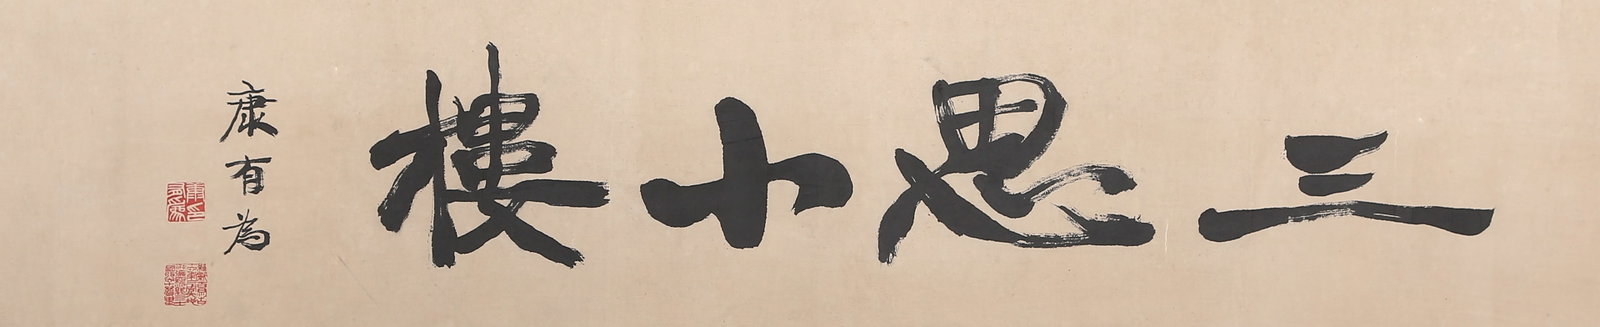 三思小樓
康有為